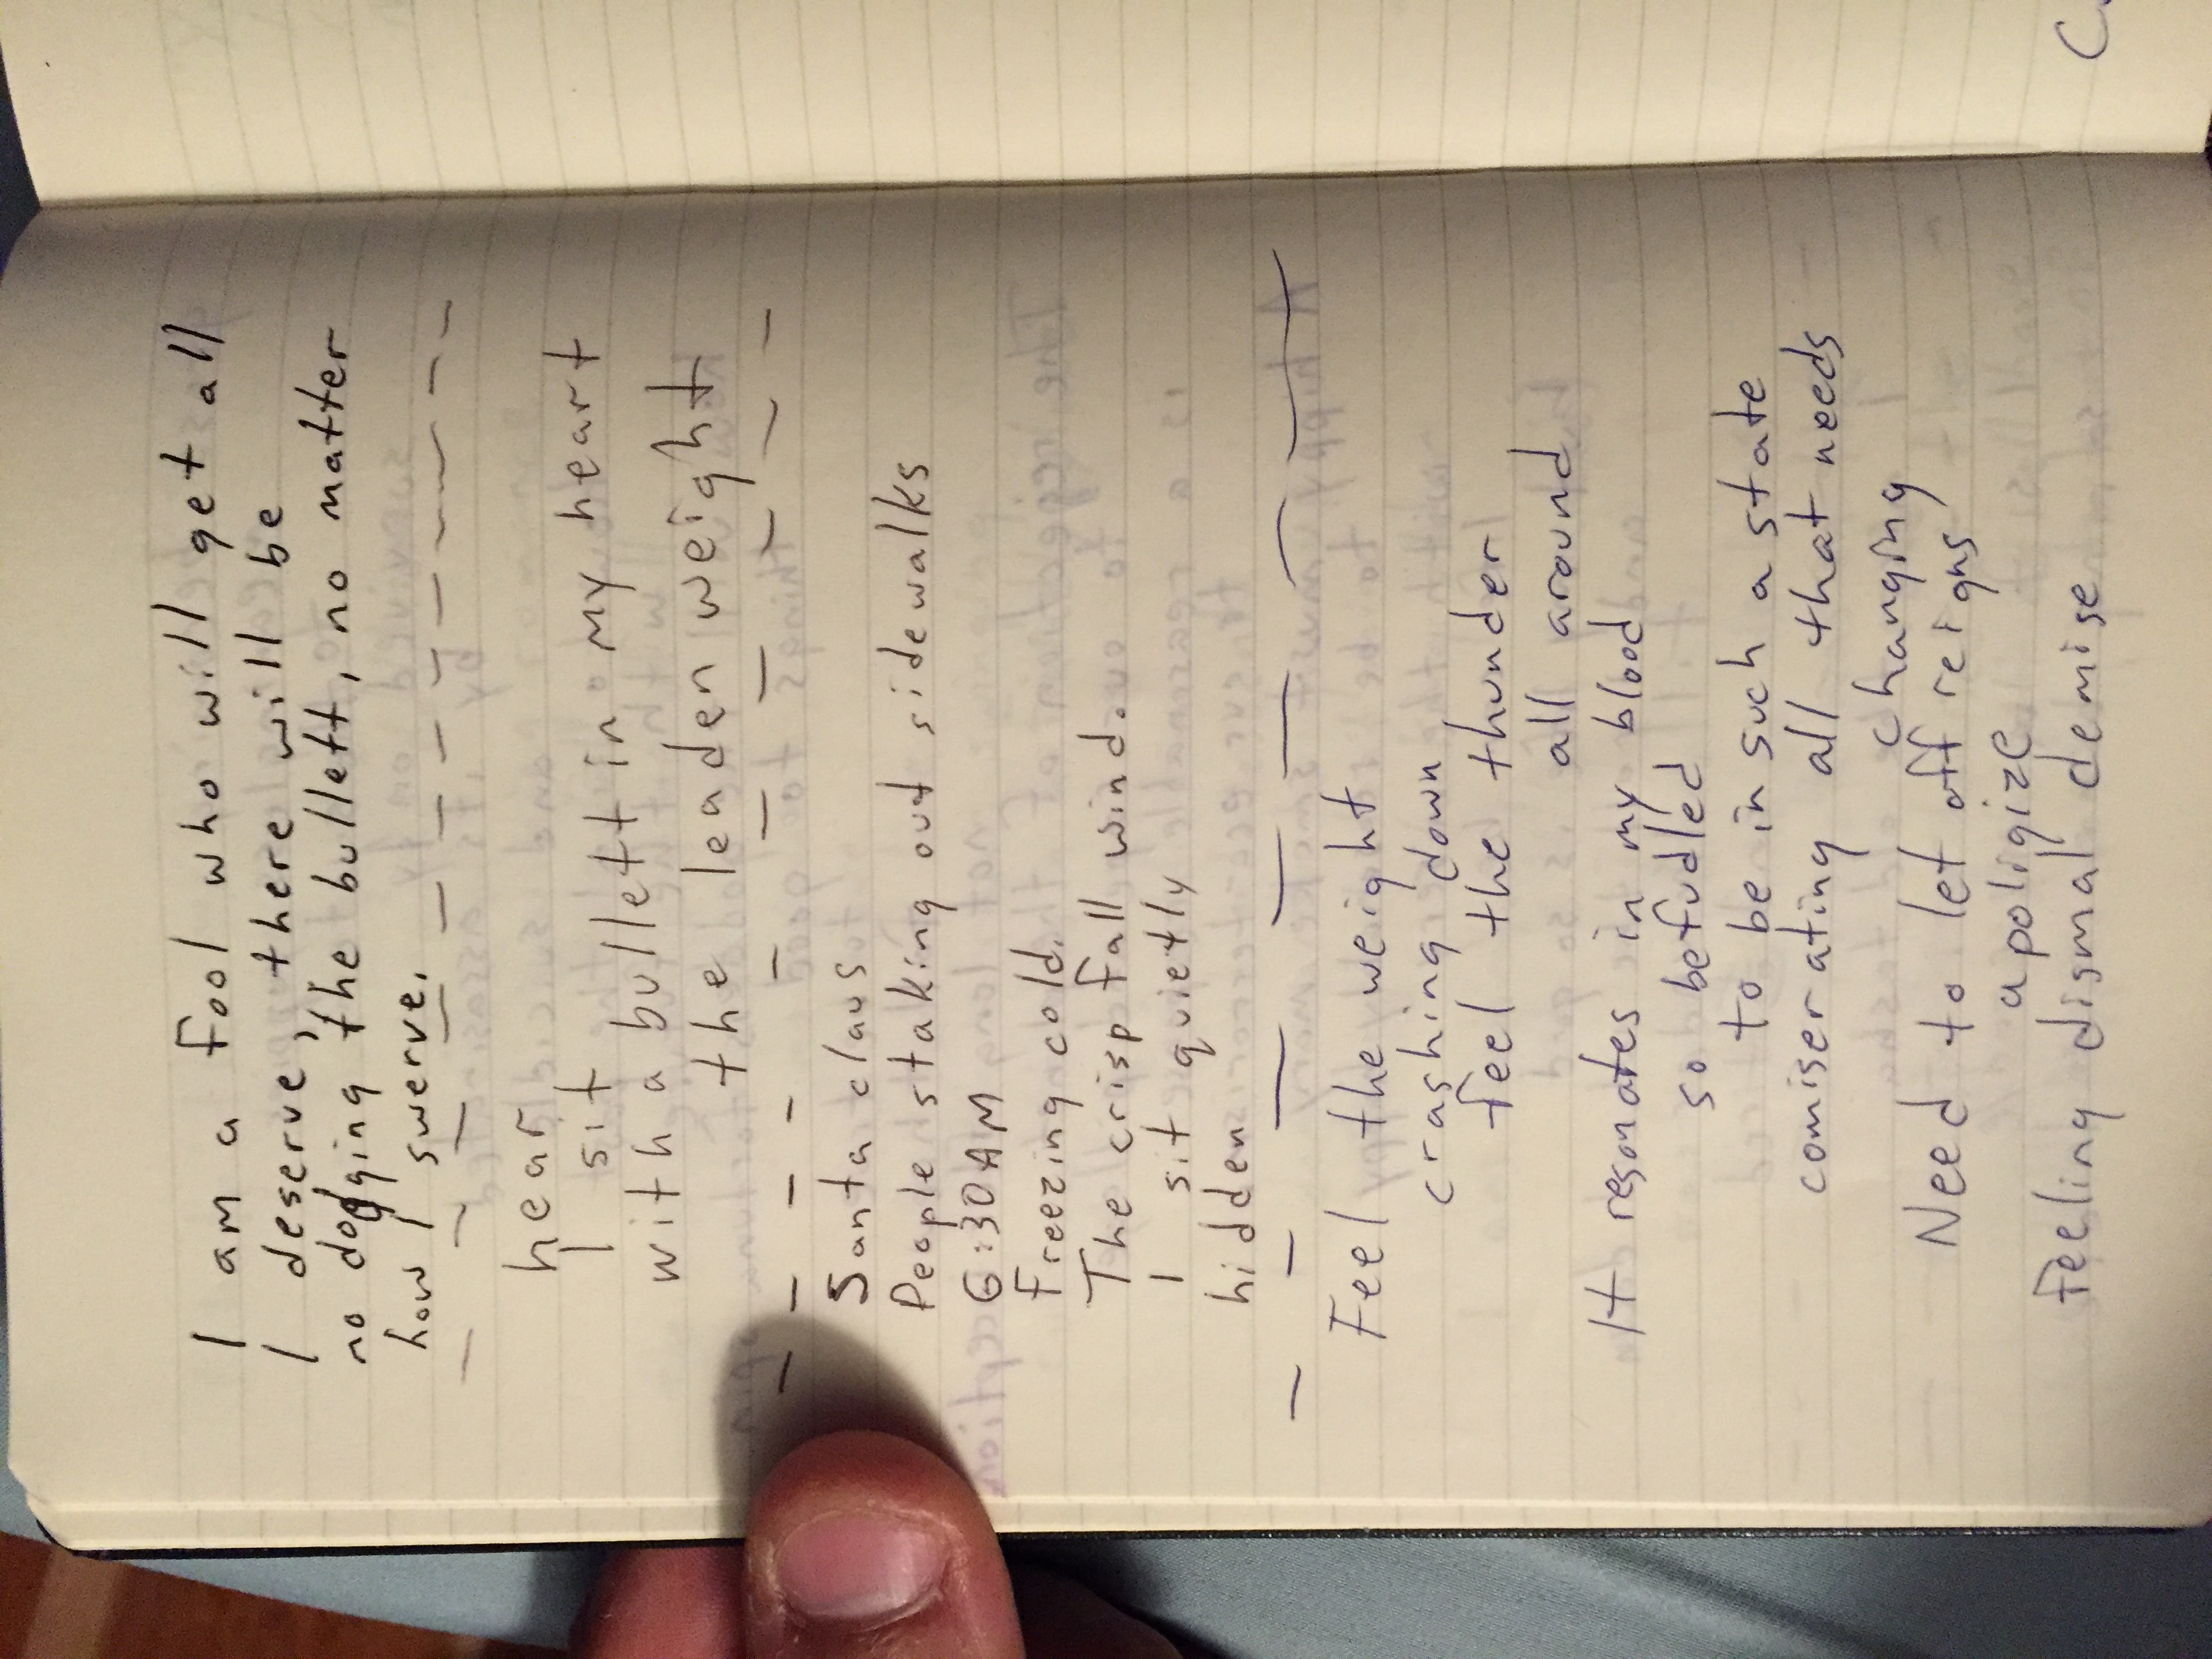 I am a fool who will get all
I deserve, there will be
no dodging the bullett, no matter
how I swerve.
hear
I sit
with a bullett in my heart
the leaden weight
Santa claus
People staking out sidewalks
6:30AM
Freezing cold.
The crisp fall wind.
I sit quietly
hidden
Feel the weight
crashing down
feel the thunder
all around
It resonates in my blood
so befudled
to be in such a state
comiserating all that needs
changing
Need to let off reigns
apoligize
feeling dismal demise